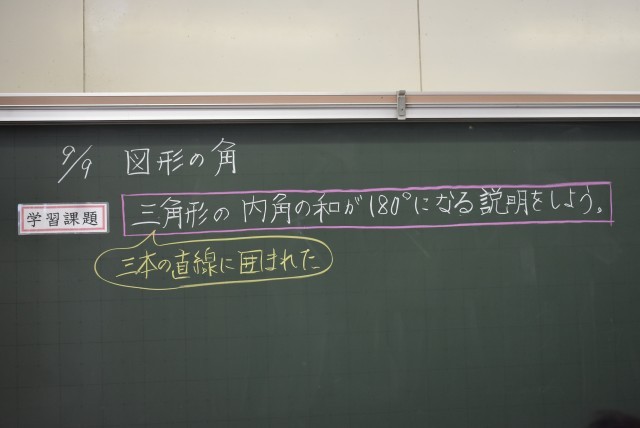 9/9 図形の角
学習課題 三角形の内角の和が180°になる説明をしよう。
三本の直線に囲まれた